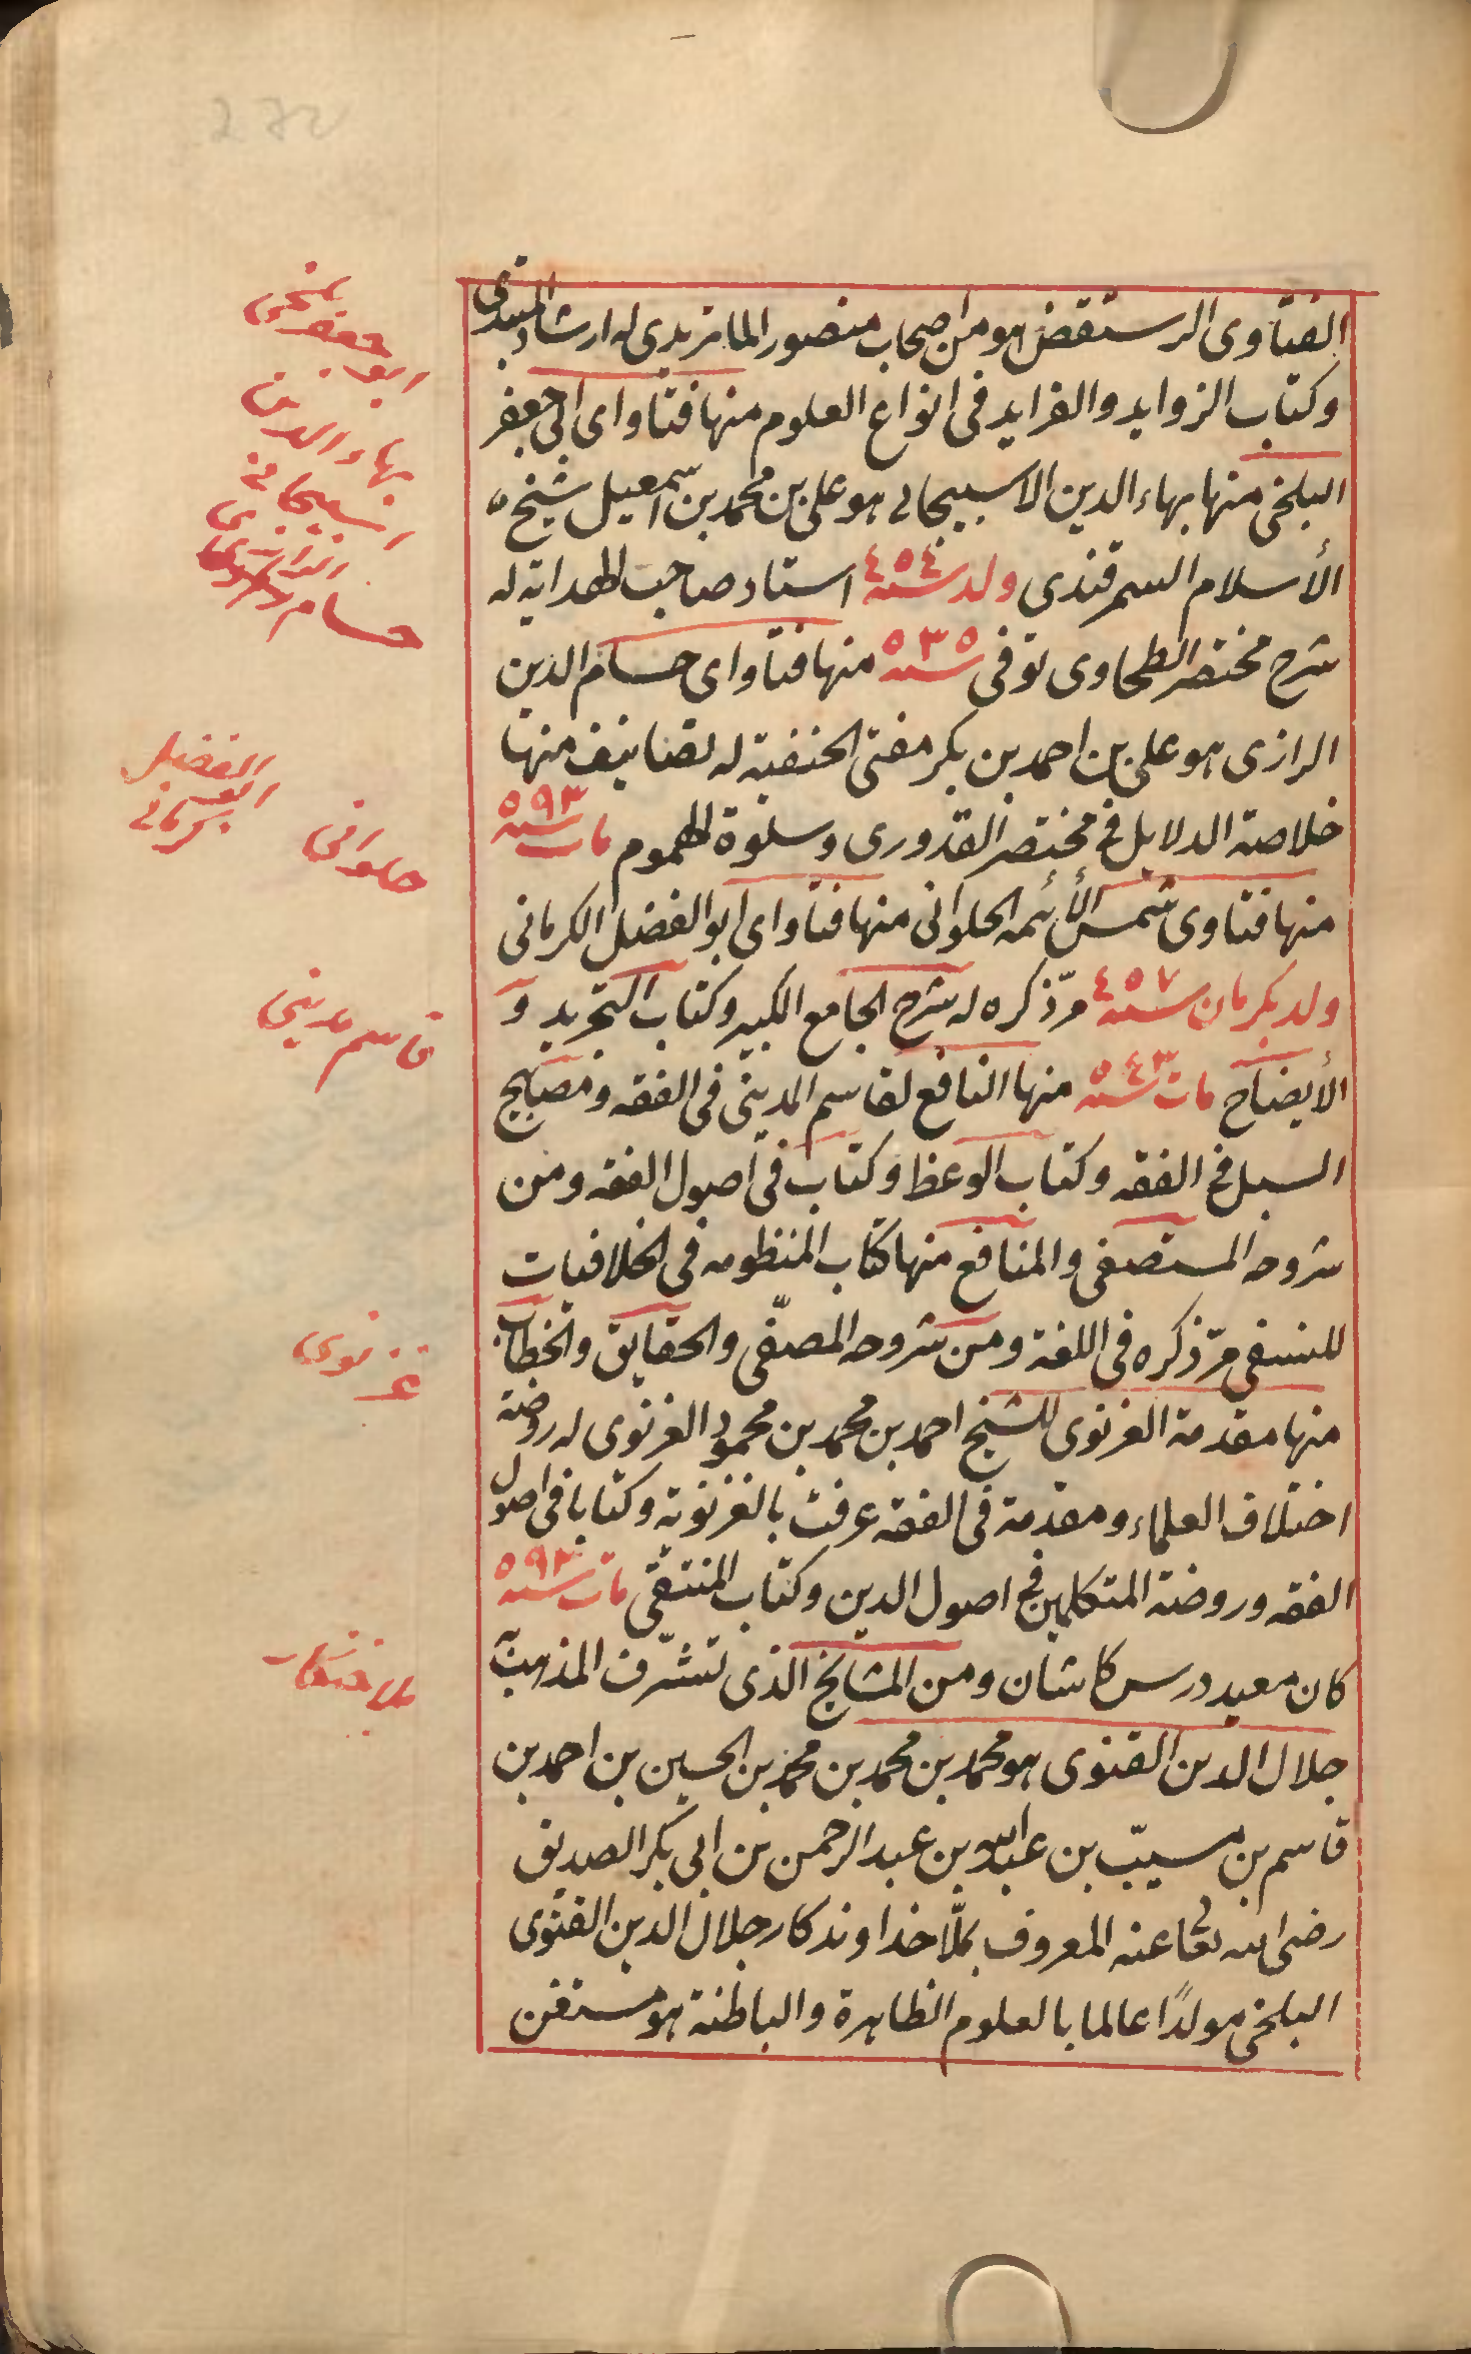 الفتاوى الرستقضن هو من اصحاب منصور الماتريدى له ارشاد المبتدى
وكتاب الزوايد والفرايد فى انواع العلوم منها فتاواى ابى جعفر
البلخى منها بهاء الدين الاسبيجابى هو على بن محمد بن اسمعيل شيخ
الأسلام السمرقندى ولد سنه ٤٥٤ استاد صاحب الهداية له
شرح مختصر الطحاوى توفى سنه ٥٣٥ منها فتاواى حسام الدين
الرازى هو على بن احمد بن بكر مفتى الحنفية له تصانيف منها
خلاصة الدلايل فى مختصر القدورى وسلوة الهموم مات سنه ٥٩٣
منها فتاوى شمس الأئمه الحلوانى منها فتاواى ابو الفضل الكرمانى
ولد بكرمان سنه ٤٥٧ مرّ ذكره له شرح الجامع الكبير وكتاب التجريد و
الأيضاح مات سنه ٥٤٣ منها النافع لقاسم المدينى فى الفقه ومصابيح
السبل فى الفقه وكتاب الوعظ وكتاب فى اصول الفقه ومن
شروحه المستصفى والمنافع منها كتاب المنظومه فى الخلافيات
للنسفى مرّ ذكره فى اللغة ومن شروحه المصفّى والحقايق والخطاب
منها مقدمة الغزنوى للشيخ احمد بن محمد بن محمود الغزنوى له روضة
اختلاف العلماء ومقدمة فى الفقه عرفت بالغزنوية وكتابا فى اصول
الفقه وروضة المتكلمين فى اصول الدين وكتاب المنتقى مات سنه ٥٩٣
كان معيد درس كاشان ومن المشايخ الذى تشرّف المذهب
جلال الدين القنوى هو محمد بن محمد بن محمد بن الحسين بن احمد بن
قاسم بن مسيّب بن عبد الله بن عبد الرحمن بن ابى بكر الصديق
رضى الله تعا عنه المعروف بملّا خداوندكار جلال الدين القنوى
البلخى مولدًا عالما بالعلوم الظاهرة والباطنة هو مستغن
بلخى
ابو جعفر
بهاء الدين
اسبيجابى
الرازى
حسام
ابو الفضل
كرمانى
حلوانى
قاسم مدينى
غزنوى
ملا خنكار